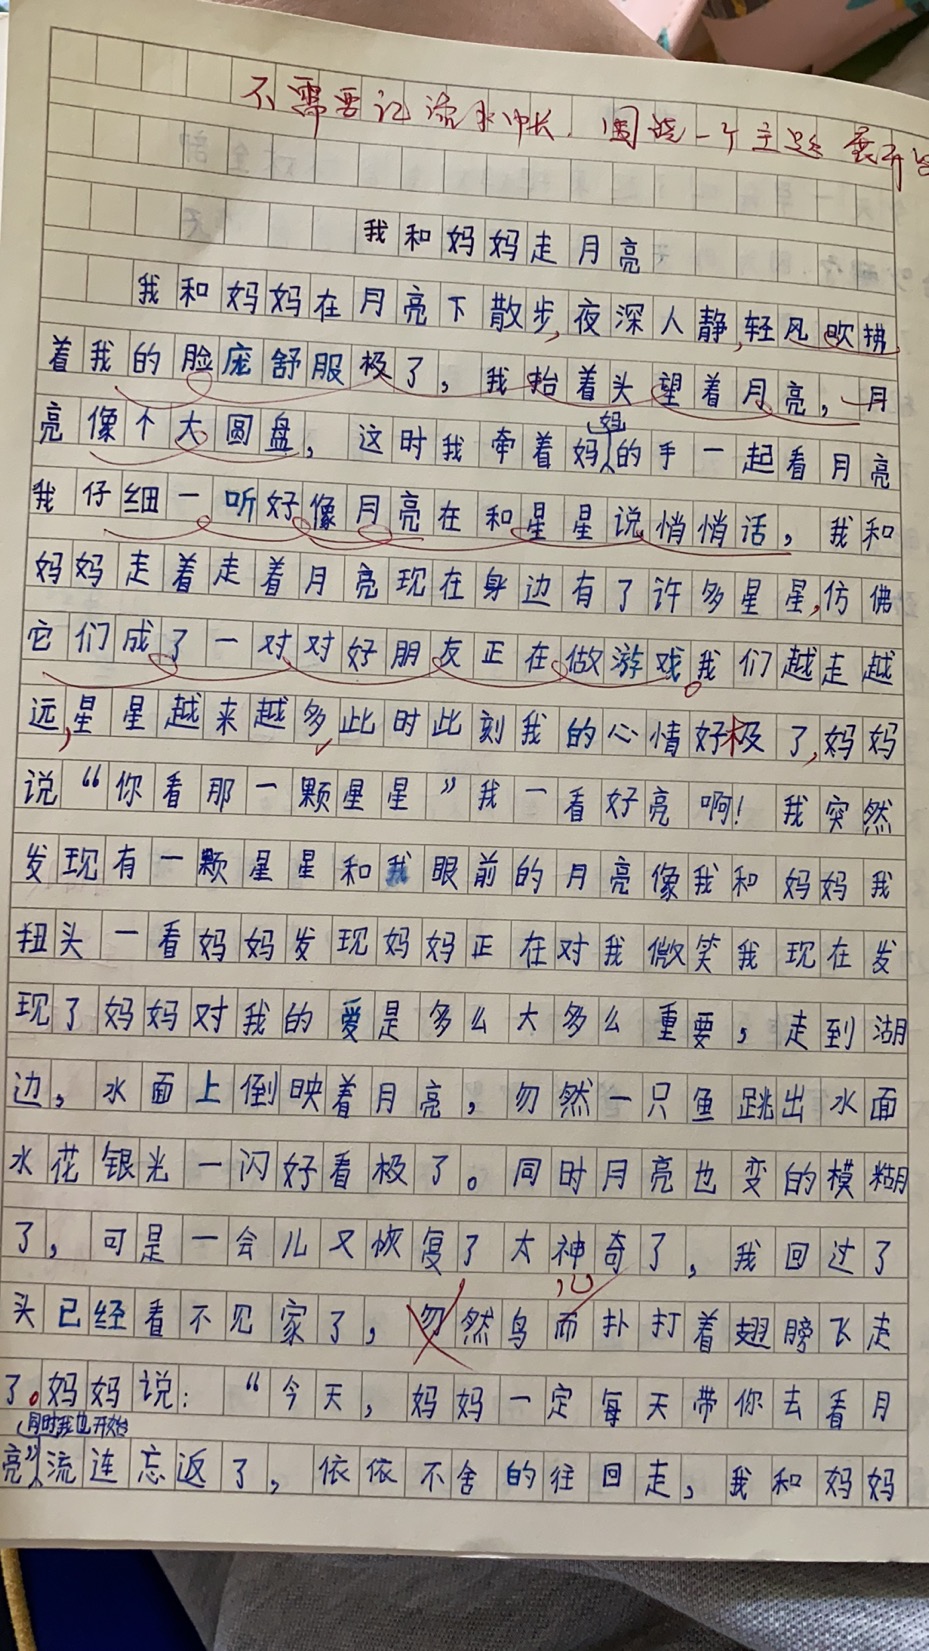 不需要记流水账，围绕一个主题展开
我和妈妈走月亮
我和妈妈在月亮下散步,夜深人静,轻风吹拂
着我的脸庞舒服极了，我抬着头望着月亮，月
亮像个大圆盘，这时我牵着妈妈的手一起看月亮
我仔细一听好像月亮在和星星说悄悄话，我和
妈妈走着走着月亮现在身边有了许多星星,仿佛
它们成了一对对好朋友正在做游戏。我们越走越
远,星星越来越多,此时此刻我的心情好极了,妈妈
说“你看那一颗星星”我一看好亮啊！我突然
发现有一颗星星和我眼前的月亮像我和妈妈我
扭头一看妈妈发现妈妈正在对我微笑我现在发
现了妈妈对我的爱是多么大多么重要，走到湖
边，水面上倒映着月亮，勿然一只鱼跳出水面
水花银光一闪好看极了。同时月亮也变的模糊
了，可是一会儿又恢复了太神奇了，我回过了
头已经看不见家了，勿然鸟而扑打着翅膀飞走
了。妈妈说：“今天，妈妈一定每天带你去看月
同时我也开始
亮”流连忘返了，依依不舍的往回走，我和妈妈